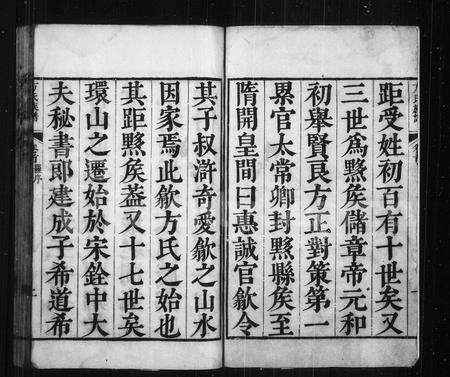 距受姓初百有十世矣又
三世為黟矦儲章帝元和
初舉賢良方正對策第一
累官太常卿封黟縣矦至
隋開皇間曰惠誠官歙令
其子叔滸奇愛歙之山水
因家焉此歙方氏之始也
其距黟矦葢又十七世矣
環山之遷始於宋銓中大
夫秘書郎建成子希道希